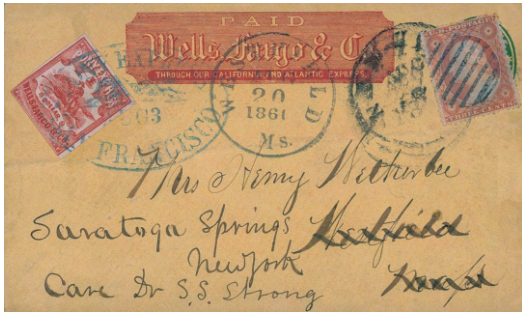 PAID
Wells, Fargo & Co
THROUGH OUR CALIFORNIA AND ATLANTIC EXPRESS
PONY EXPRESS
WELLS FARGO
FRANCISCO
20
1861
Ms.
Mrs Henry Wetherbee
Saratoga Springs Medfield
New York Mass
Care Dr S.S. Strong